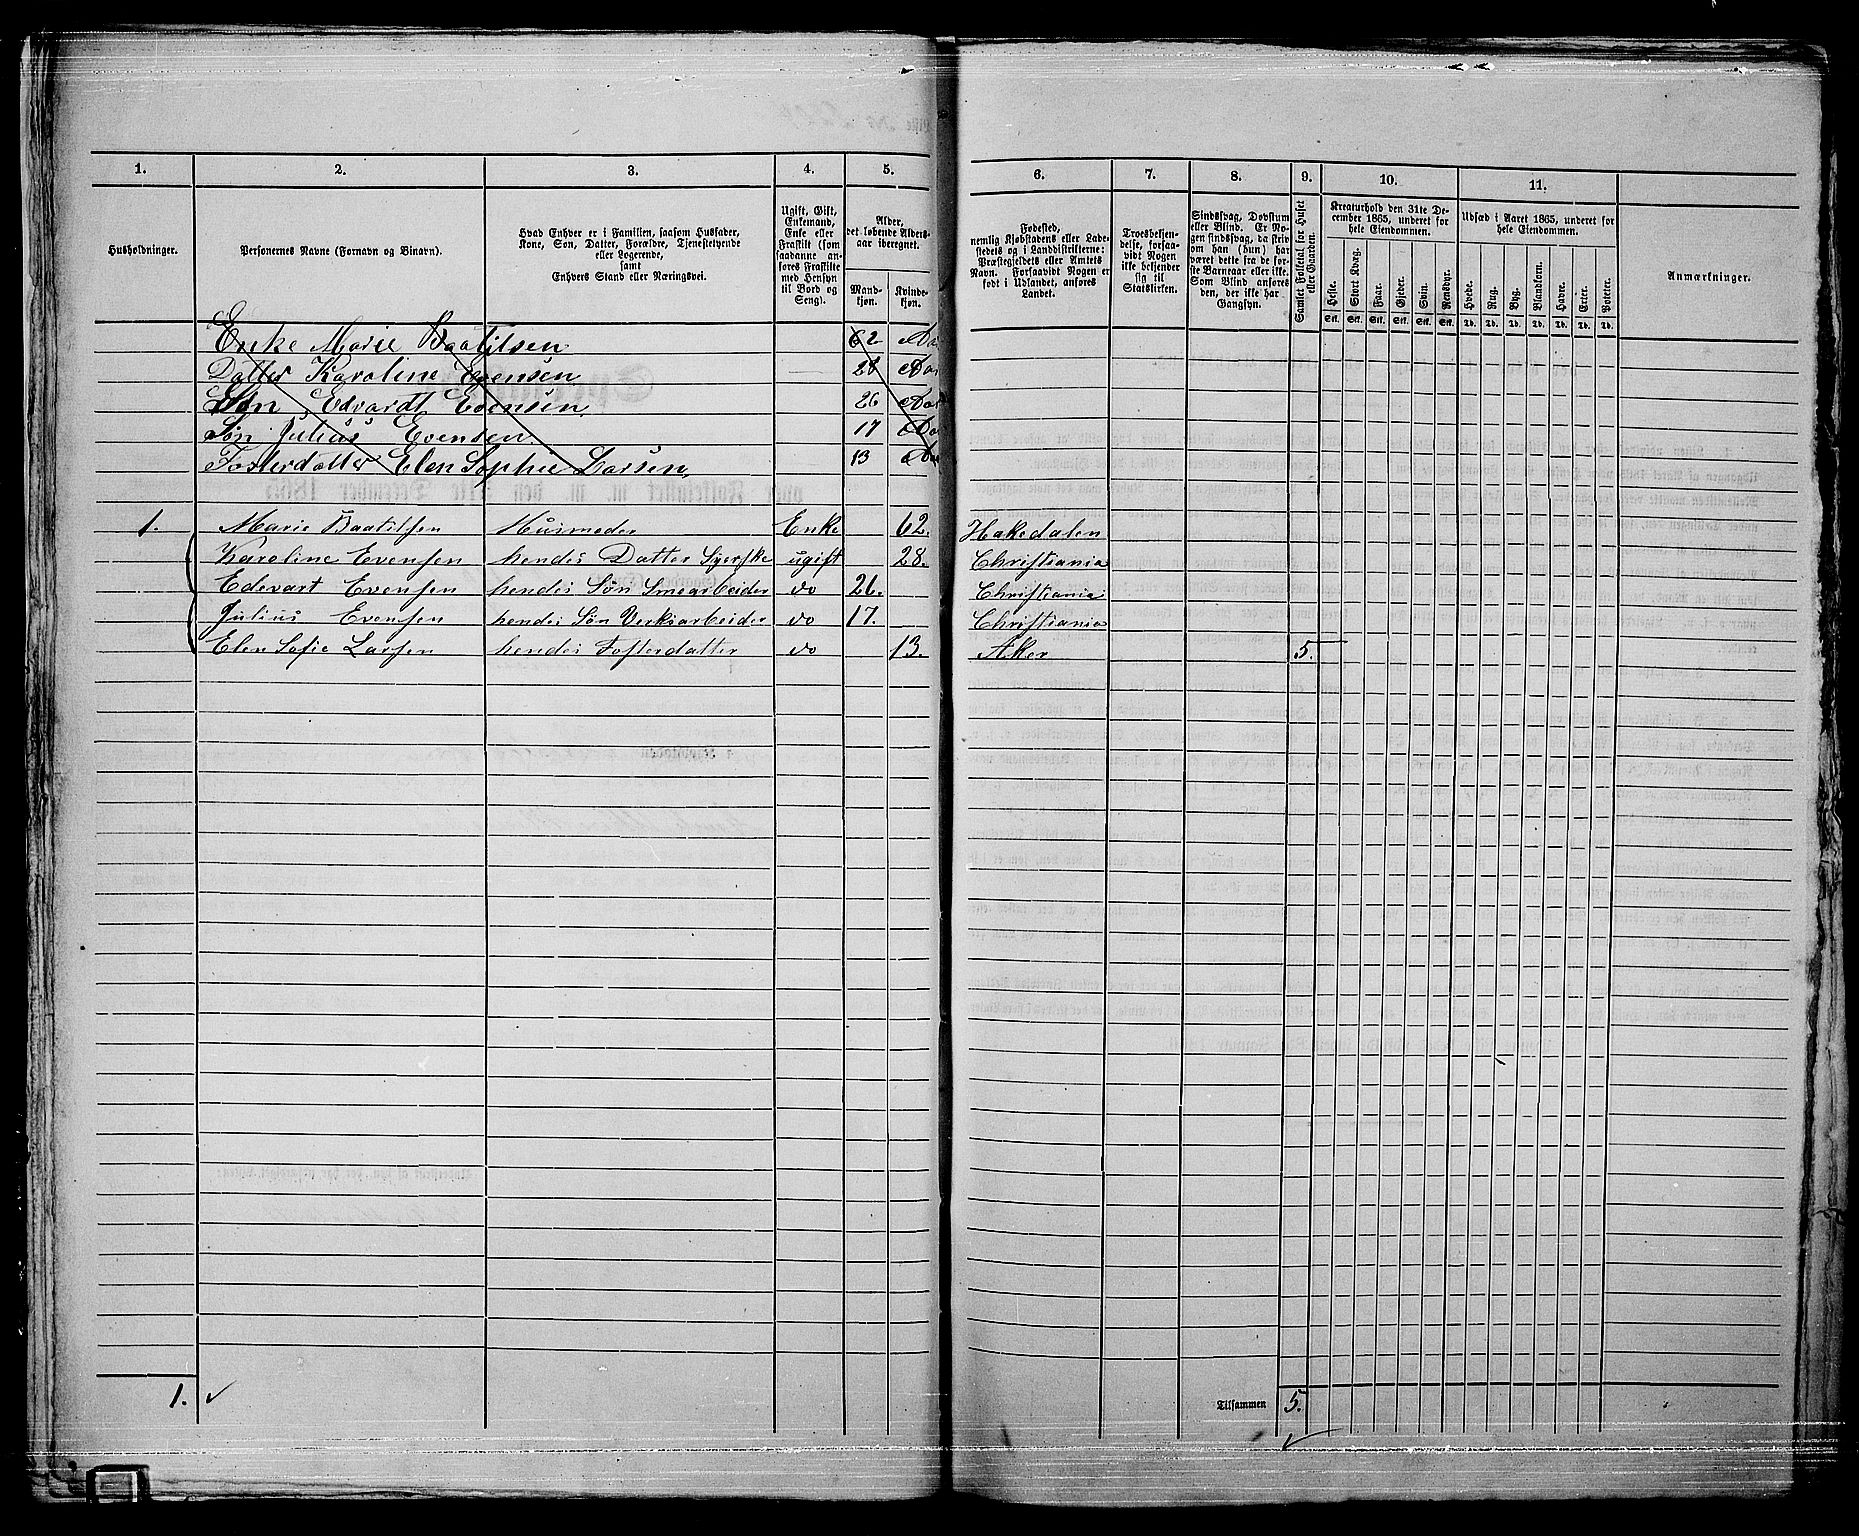 1. 2. 3. 4. 5. 6. 7. 8. 9. 10. 11.
Husholdninger.
Personernes Navne (Fornavn og Binavn).
Hvad Enhver er i Familien, saasom Husfader,
Kone, Søn, Datter, Forældre, Tjenestetyende
eller Logerende,
samt
Enhvers Stand eller Næringsvei.
Ugift, Gift,
Enkemand,
Enke eller
Fraskilt (som
saadanne an-
føres Fraskilte
med Hensyn
til Bord og
Seng).
Alder,
det løbende Alders-
aar iberegnet.
Mand-
kjøn.
Kvinde-
kjøn.
Fødested,
nemlig Kjøbstadens eller Lade-
stedets og i Landdistrikterne:
Præstegjeldets eller Amtets
Navn. Forsaavidt Nogen er
født i Udlandet, anføres
Landet.
Troesbekjen-
delse, forsaa-
vidt Nogen
ikke bekjender
sig til
Statskirken.
Sindssvag, Døvstum
eller Blind. Er No-
gen sindssvag, da skriv
om han (hun) har
været dette fra de før-
ste Barneaar eller ikke.
Som Blind anføres
den, der ikke har
Gangsyn.
Samlet Folketal for Huset
eller Gaarden.
Kreaturhold den 31te De-
cember 1865, underet for
hele Eiendommen.
Heste. Stort Kvæg. Faar. Gjeder. Svin. Rensdyr.
Stk. Stk. Stk. Stk. Stk. Stk.
Udsæd i Aaret 1865, underet for
hele Eiendommen.
Hvede. Rug. Byg. Blandkorn. Havre. Erter. Poteter.
Td. Td. Td. Td. Td. Td. Td.
Anmærkninger.
Enke Marie Baatilsen 62
Datter Karoline Evensen 28
Søn Edvardt Evensen 26
Søn Julius Evensen 17
Fosterdatter Elen Sophie Larsen 13
1. Marie Baatilsen Husmoder Enke 62. Hakedalen
Karoline Evensen hendes Datter Syerske ugift 28. Christiania
Edevart Evensen hendes Søn Smearbeider do 26. Christiania
Julius Evensen hendes Søn Verksarbeider do 17. Christiania
Elen Sofie Larsen hendes Fosterdatter do 13. Aker 5.
1. Tilsammen 5.